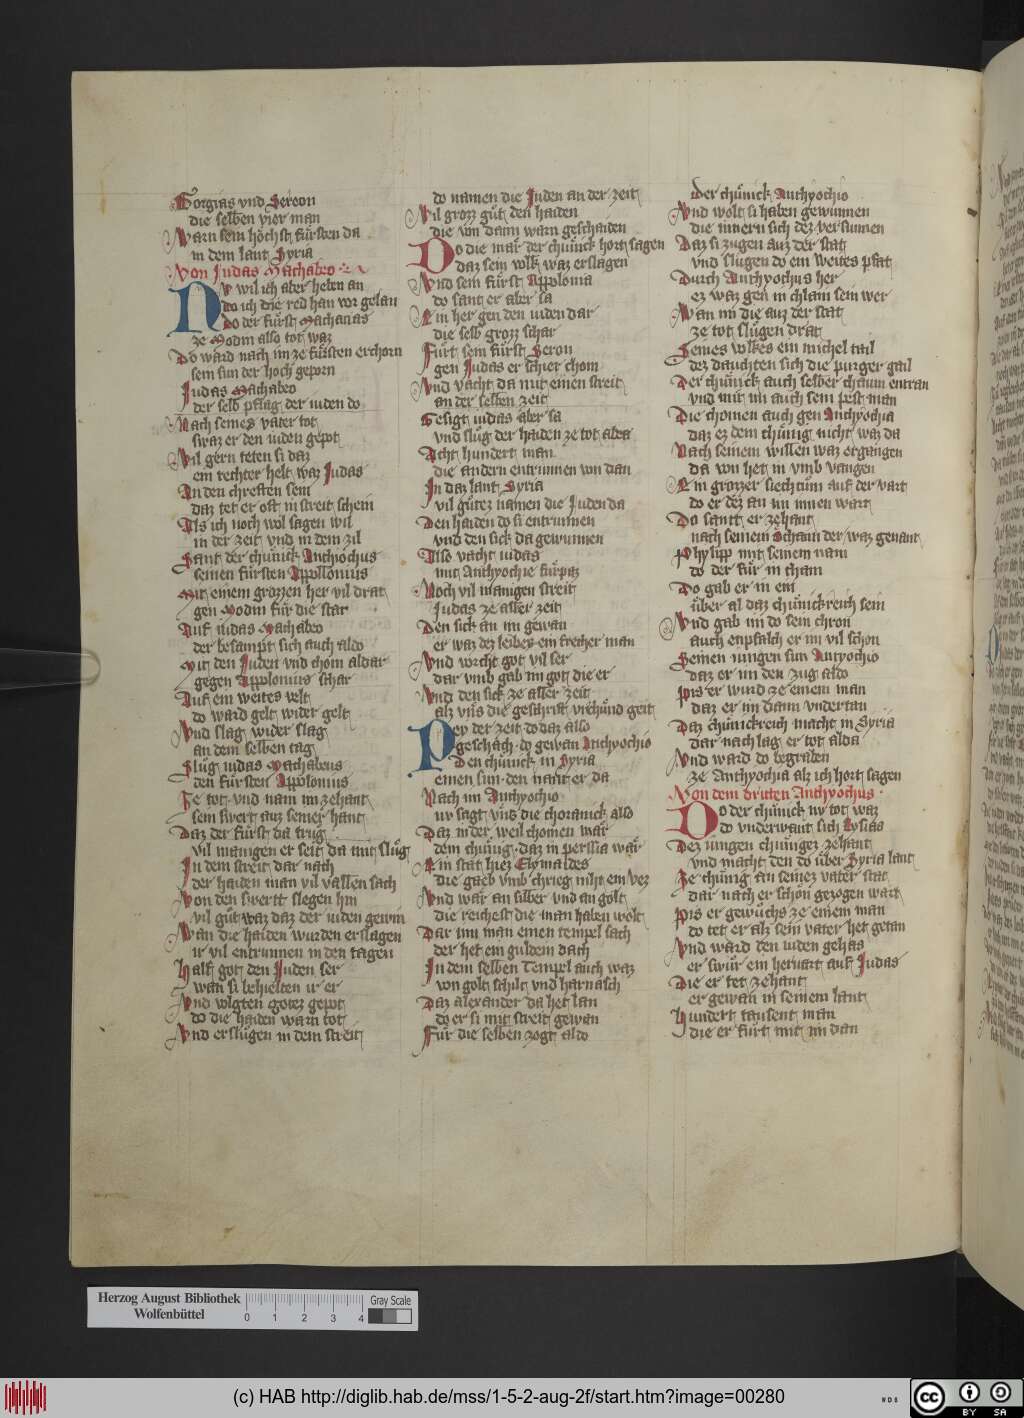 Gorgias vnd Sereon
die selben vier man
Warn sein höchst fürsten da
in dem lant Syria
Von Judas Machabeo
Nv wil ich aber heben an
do ich die red han vor gelan
Do der fürst Machanas
ze Modin also tot waz
Do ward nach im ze fürsten erchorn
sein sun der hoch geporn
Judas Machabeo
der selb pflag der iuden do
Nach seines vater tot
swaz er den iuden gepot
Vil gern teten si daz
ein rechter helt waz Judas
An den chreften sein
daz tet er oft in streit schein
Als ich noch wol sagen wil
in der zeit vnd in dem zil
Sant der chünick Anthiochus
seinen fürsten Appollonius
Mit einem grozzen her vil drat
gen Modin für die stat
Auf iudas Machabeo
der besampt sich auch aldo
Mit den Juden vnd chom aldar
gegen Appolonius schar
Auf ein weites velt
do ward gelt wider gelt
Vnd slag wider slag
an dem selben tag
Slůg iudas Machabeus
den fürsten Appolonius
Ze tot vnd nam im zehant
sein swert auz seiner hant
Daz der fürst da trůg
vil manigen er seit da mit slůg
In dem streit dar nach
der haiden man vil vallen sach
Von den swertt slegen hin
vil gůt waz daz der iuden gewin
Wan die haiden wurden erslagen
ir vil entrunnen in den tagen
Half got den Juden ser
wan si behielten ir er
Vnd volgten gotez gepot
do die haiden warn tot
Vnd erslůgen in dem streit
do namen die Juden an der zeit
Vil grozz gůt den haiden
die von dann warn geschaiden
Do die mär der chünick hort sagen
daz sein volk waz erslagen
Vnd sein fürst Appolonia
do sant er aber sa
Ein her gen den iuden dar
die selb grozz schar
Fürt sein fürst Seron
gen Judas er schier chom
Vnd vacht da mit einen streit
an der selben zeit
Gesigt iudas aber sa
vnd slůg der haiden ze tot alda
Acht hundert man
die andern entrunnen von dan
In daz lant Syria
vil gůtez namen die Juden da
Den haiden do si entrunnen
vnd den sick da gewunnen
Also vacht iudas
mit Anthyochie fürpaz
Noch vil manigen streit
Judas ze aller zeit
Den sick an im gewan
er waz dez leibes ein frecher man
Vnd vorcht got vil ser
dar vmb gab im got die er
Vnd den sick ze aller zeit
alz vns die geschrift vrchünd geit
Pey der zeit do daz also
geschach do gewan Anthyochio
Den chünick in Syria
einen sun den nant er da
Nach im Anthyochio
nv sagt vns die choranick also
Daz in der weil chomen mär
dem chünig daz in perssia wär
Ein stat hiez Elymaides
die gaeb vmb chrieg niht ein vez
Vnd wär an silber vnd an golt
die reichest die man haben wolt
Dar inn man einen tempel sach
der het ein guldem dach
In dem selben Tempel auch waz
von golt schilt vnd harnasch
Daz alexander da het lan
do er si mit streit gewan
Für die selben zogt aldo
der chünick Anthyochio
Vnd wolt si haben gewunnen
die innern sich dez versunnen
Daz si zugen auz der stat
vnd slůgen do ein weites pfat
Durch Anthyochus her
ez waz gen in chlain sein wer
Wan im die auz der stat
ze tot slůgen drat
Seines volkes ein michel tail
dez dauchten sich die purger gail
Der chünick auch selber chaum entran
vnd mit im auch sein pest man
Die chomen auch gen Anthyochia
daz ez dem chünig nicht waz da
Nach seinem willen waz ergangen
da von het in vmb vangen
Ein grozzer siechtům auf der vart
do er dez an im innen wart
Do santt er zehant
nach seinem schaffner der waz genant
Phylipp mit seinem nam
do der für in cham
Do gab er in ein
über al daz chünickreich sein
Vnd gab im do sein chron
auch enpfalch er im vil schon
Seinen iungen sun Antyochio
daz er im den zug aldo
Pis er wurd ze einem man
daz er im dann vndertan
Daz chünickreich macht in Syria
dar nach lag er tot alda
Vnd ward do begraben
ze Anthyochia alz ich hort sagen
Von dem dritten Anthyochus
Do der chünick nv tot waz
do vnderwant sich Lysias
Dez iungen chünigez zehant
vnd macht den do über Syria lant
Ze chünig an seinez vater stat
dar nach er schon gezogen wart
Pis er gewůchs ze einem man
do tet er alz sein vater het getan
Vnd ward den iuden gehas
er swůr ein hervart auf Judas
Die er tet zehant
er gewan in seinem lant
Hundert tausent man
die er fürt mit im dan
Herzog August Bibliothek
Wolfenbüttel
0 1 2 3 4
Gray Scale
(c) HAB http://diglib.hab.de/mss/1-5-2-aug-2f/start.htm?image=00280
WDB
cc BY SA